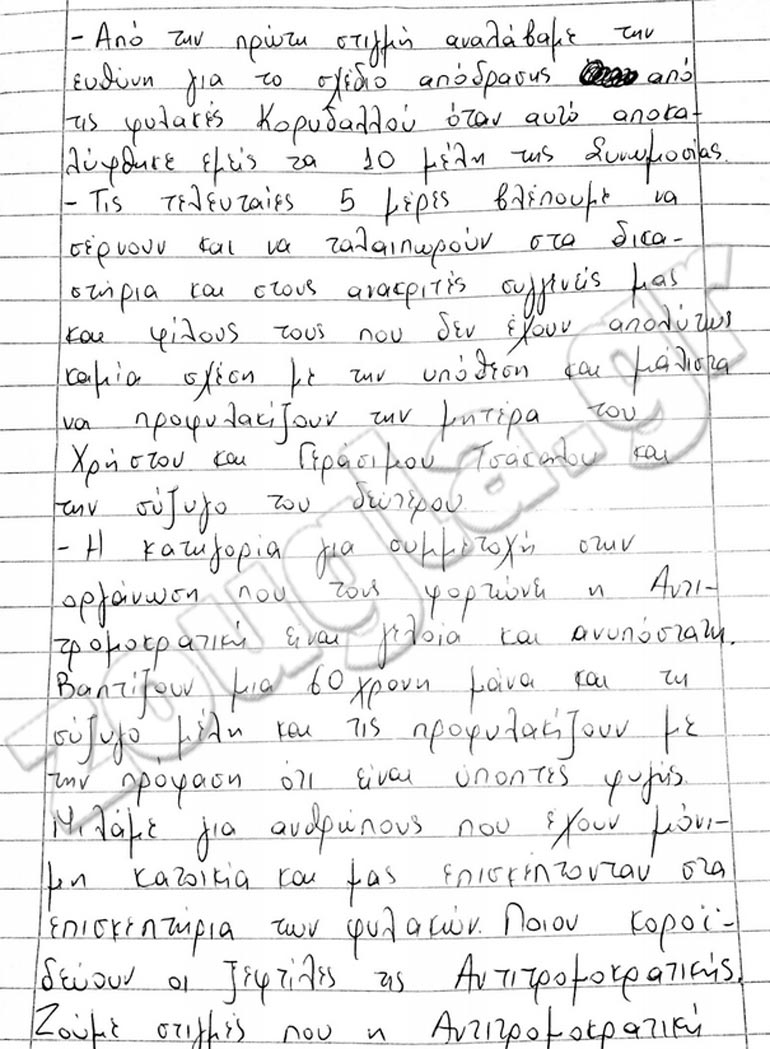 - Από την πρώτη στιγμή αναλάβαμε την
ευθύνη για το σχέδιο απόδρασης από
τις φυλακές Κορυδαλλού όταν αυτό αποκα-
λύφθηκε εμείς τα 10 μέλη της Συνωμοσίας.
- Τις τελευταίες 5 μέρες βλέπουμε να
σέρνουν και να ταλαιπωρούν στα δικα-
στήρια και στους ανακριτές συγγενείς μας
και φίλους τους που δεν έχουν απολύτως
καμία σχέση με την υπόθεση και μάλιστα
να προφυλακίζουν την μητέρα του
Χρήστου και Γεράσιμου Τσάκαλου και
την σύζυγο του δεύτερου
- Η κατηγορία για συμμετοχή στην
οργάνωση που τους φορτώνει η Αντι-
τρομοκρατική είναι γελοία και ανυπόστατη.
Βαπτίζουν μια 60χρονη μάνα και τη
σύζυγο μέλη και τις προφυλακίζουν με
την πρόφαση ότι είναι ύποπτες φυγής.
Μιλάμε για ανθρώπους που έχουν μόνι-
μη κατοικία και μας επισκέπτονταν στα
επισκεπτήρια των φυλακών. Ποιον κοροϊ-
δεύουν οι ξεφτίλες της Αντιτρομοκρατικής.
Ζούμε στιγμές που η Αντιτρομοκρατική
zougla.gr